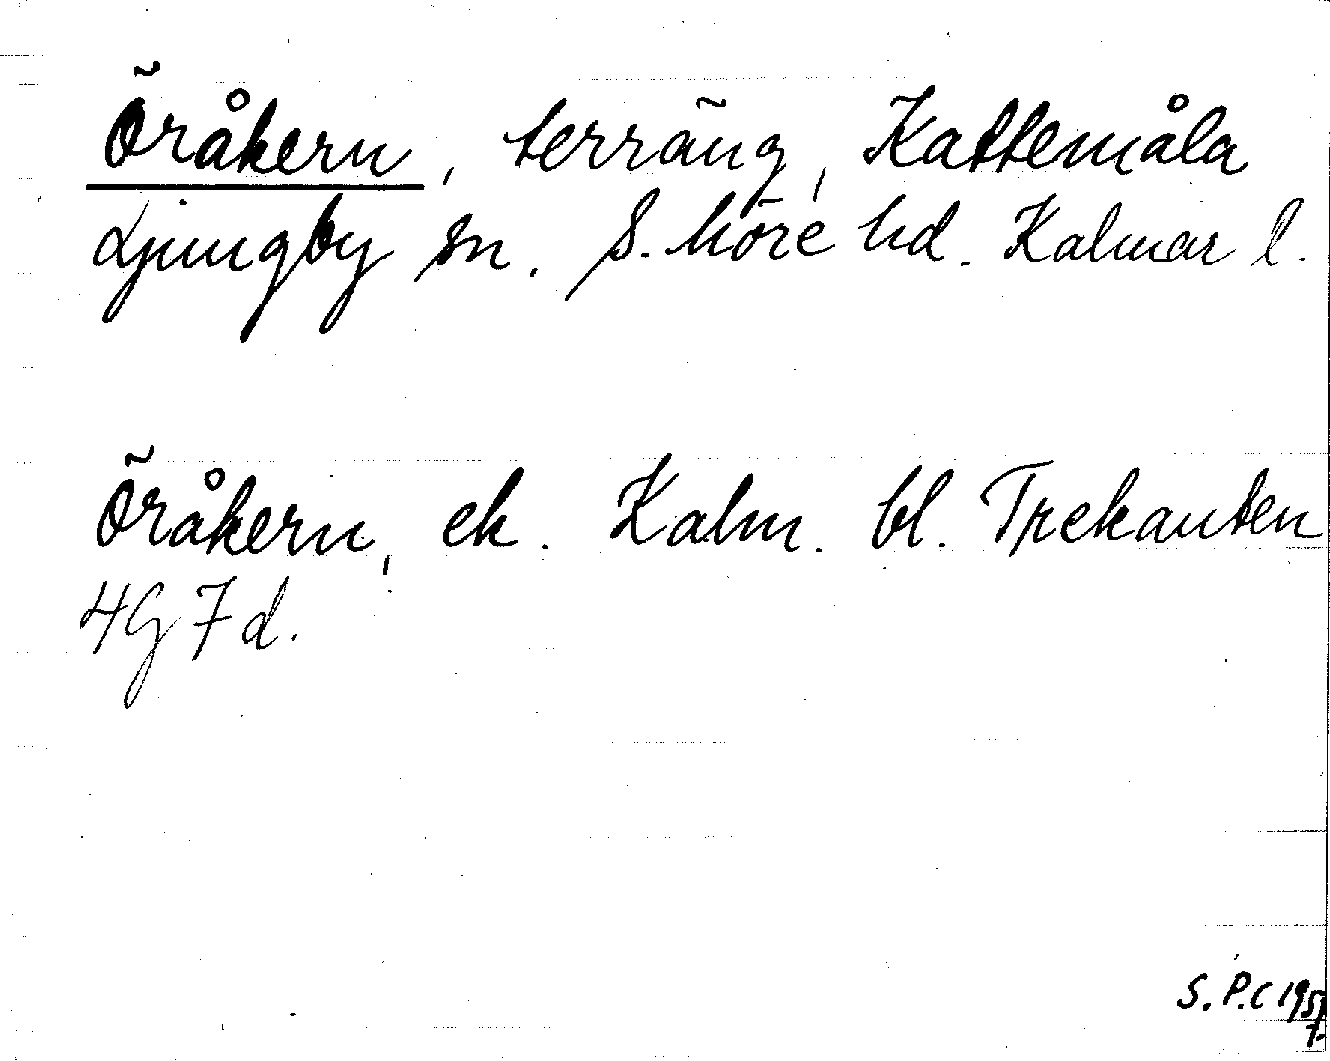 Öråkern, terräng, Kattemåla
Ljungby sn. S. Möre hd. Kalmar l.
Öråkern, ek. Kalm. bl. Trekanten
4G7d.
S. P.C 195